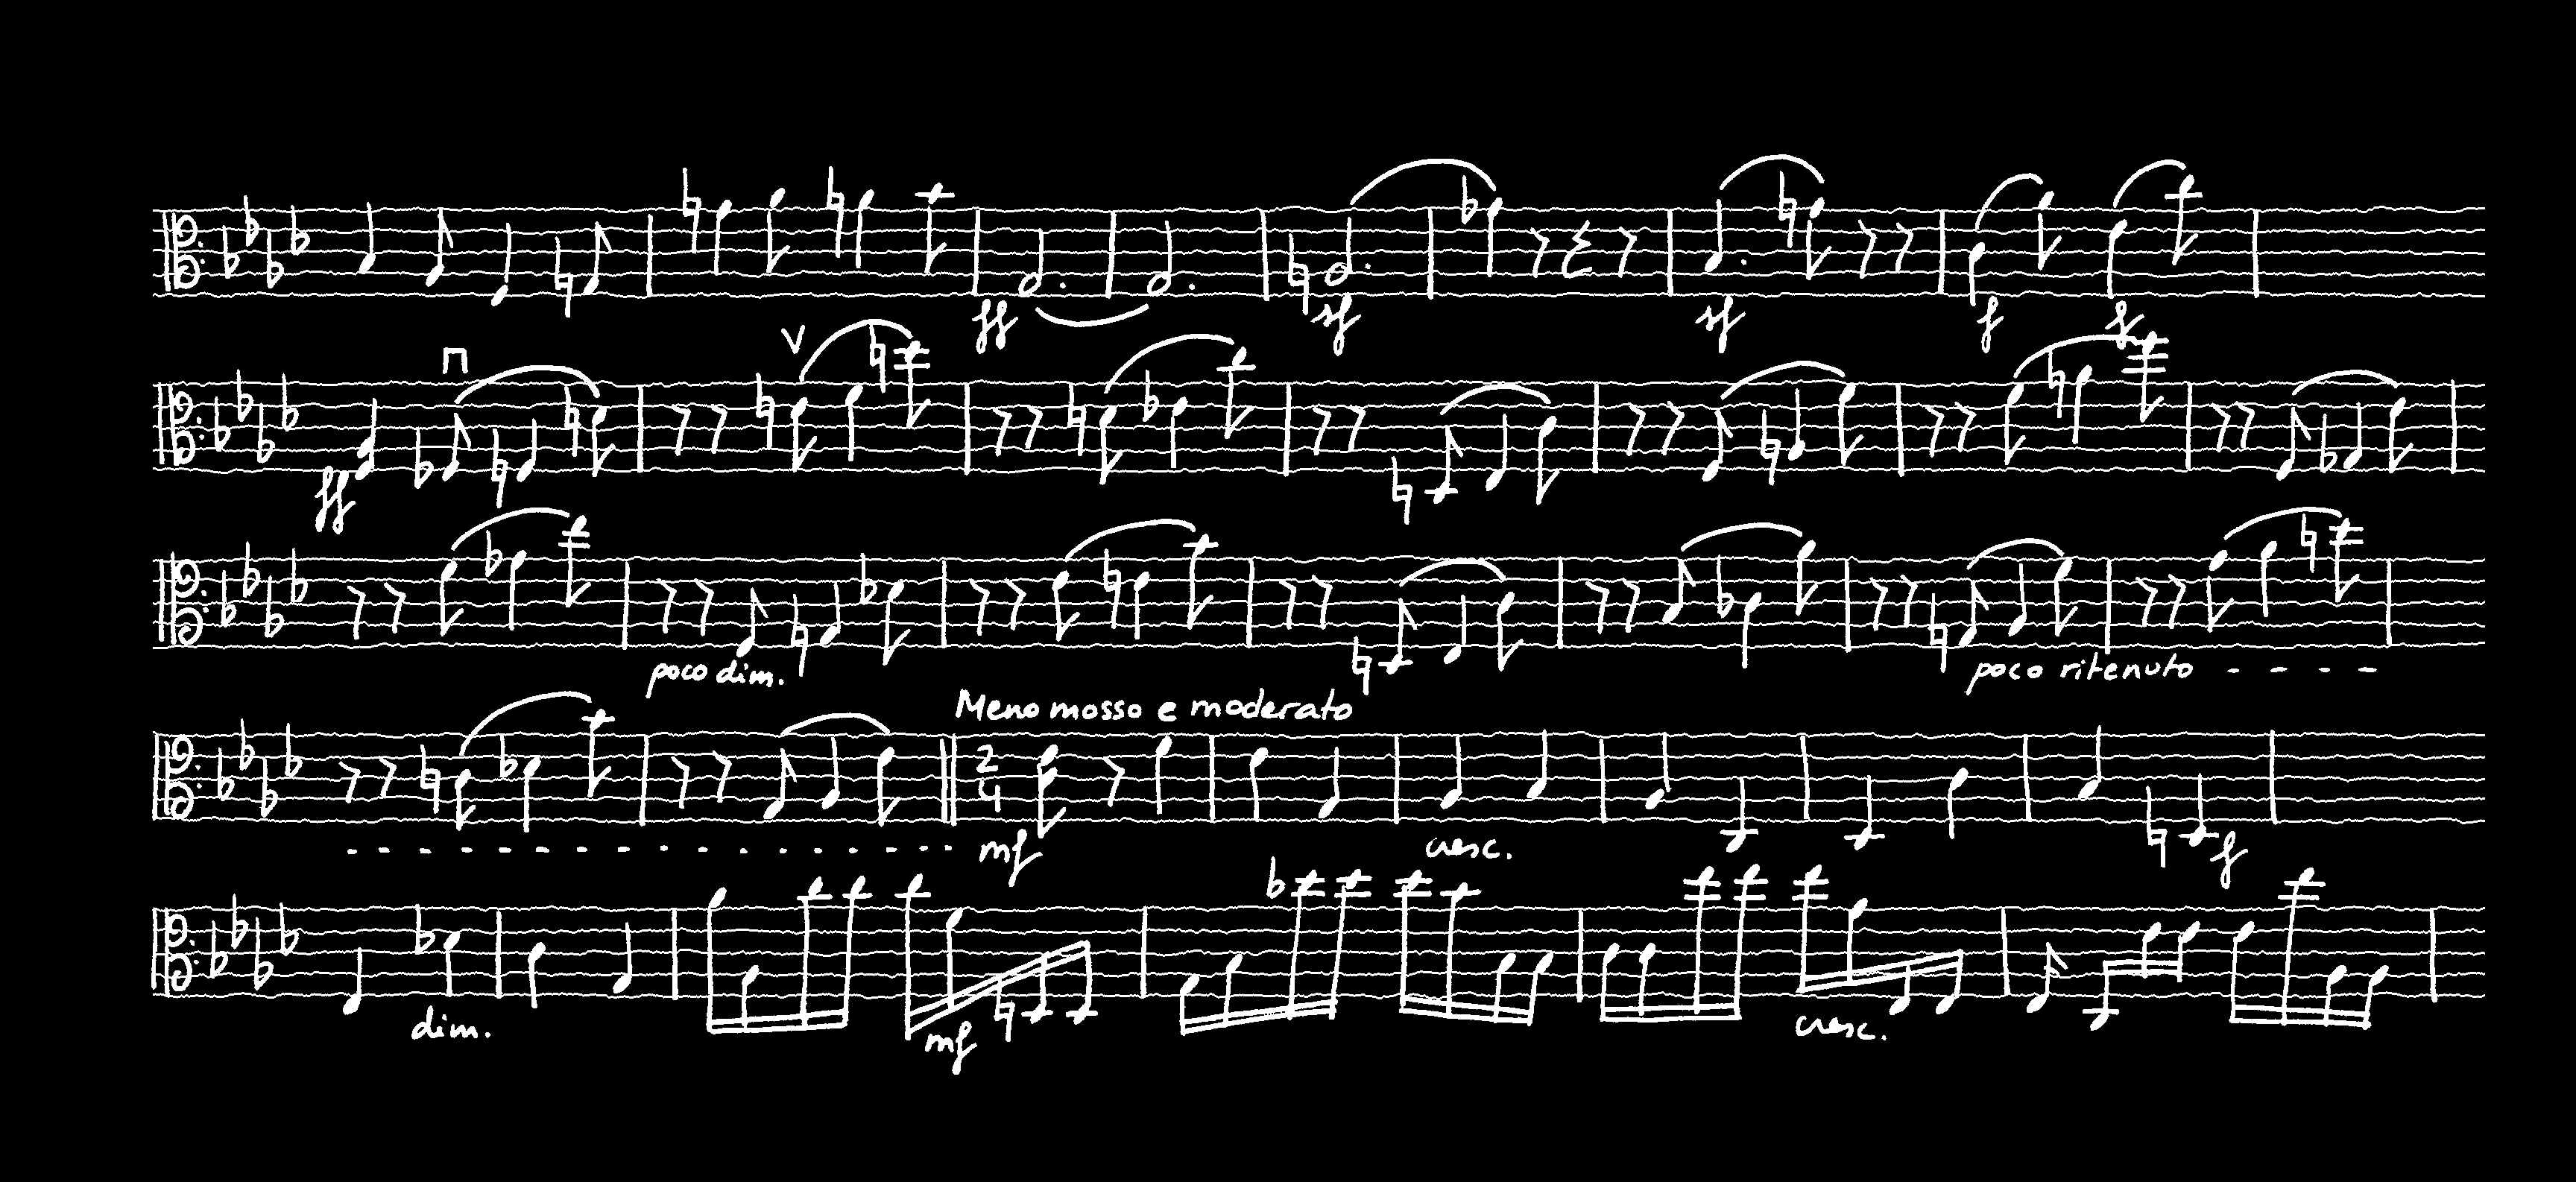 ff sf sf f f
ff
poco dim. poco ritenuto - - - -
Meno mosso e moderato
2 4
mf cresc. f
dim. mf cresc.